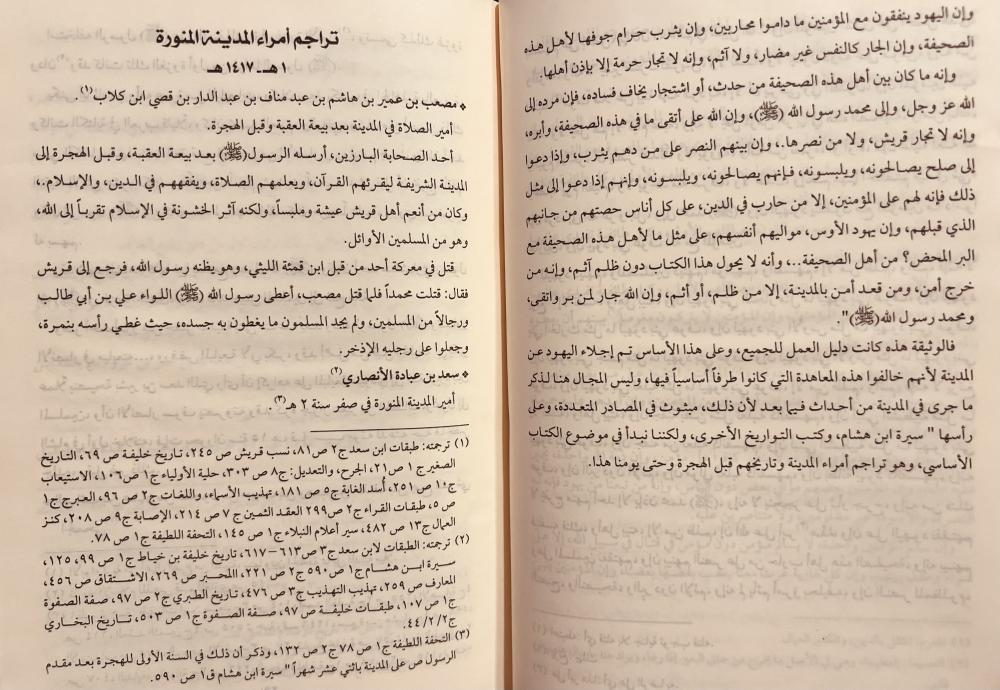 وإن اليهود ينفقون مع المؤمنين ما داموا محاربين، وإن يثرب حرام جوفها لأهل هذه
الصحيفة، وإن الجار كالنفس غير مضار، ولا آثم، وإنه لا تجار حرمة إلا بإذن أهلها.
وإنه ما كان بين أهل هذه الصحيفة من حدث، أو اشتجار يخاف فساده، فإن مرده إلى
الله عز وجل، وإلى محمد رسول الله (ﷺ)، وإن الله على أتقى ما في هذه الصحيفة، وأبره،
وإنه لا تجار قريش، ولا من نصرها.، وإن بينهم النصر على من دهم يثرب، وإذا دعوا
إلى صلح يصالحونه، ويلبسونه، فإنهم يصالحونه، ويلبسونه، وإنهم إذا دعوا إلى مثل
ذلك فإنه لهم على المؤمنين، إلا من حارب في الدين، على كل أناس حصتهم من جانبهم
الذي قبلهم، وإن يهود الأوس، مواليهم أنفسهم، على مثل ما لأهل هذه الصحيفة مع
البر المحض؟ من أهل الصحيفة..، وأنه لا يحول هذا الكتاب دون ظلم آثم، وإنه من
خرج أمن، ومن قعد أمن بالمدينة، إلا من ظلم، أو أثم، وإن الله جار لمن بر واتقى،
ومحمد رسول الله(ﷺ)".
فالوثيقة هذه كانت دليل العمل للجميع، وعلى هذا الأساس تم إجلاء اليهود عن
المدينة لأنهم خالفوا هذه المعاهدة التي كانوا طرفاً أساسياً فيها، وليس المجال هنا لذكر
ما جرى في المدينة من أحداث فيما بعد لأن ذلك، مبثوث في المصادر المتعددة، وعلى
رأسها " سيرة ابن هشام، وكتب التواريخ الأخرى، ولكننا نبدأ في موضوع الكتاب
الأساسي، وهو تراجم أمراء المدينة وتاريخهم قبل الهجرة وحتى يومنا هذا.
تراجم أمراء المدينة المنورة
١هـ - ١٤١٧هـ
* مصعب بن عمير بن هاشم بن عبد مناف بن عبد الدار بن قصي ابن كلاب(١).
أمير الصلاة في المدينة بعد بيعة العقبة وقبل الهجرة.
أحد الصحابة البارزين، أرسله الرسول(ﷺ) بعد بيعة العقبة، وقبل الهجرة إلى
المدينة الشريفة ليقرئهم القرآن، ويعلمهم الصلاة، ويفقههم في الدين، والإسلام.،
وكان من أنعم أهل قريش عيشة وملبساً، ولكنه آثر الخشونة في الإسلام تقرباً إلى الله،
وهو من المسلمين الأوائل.
قتل في معركة أحد من قبل ابن قمئة الليثي، وهو يظنه رسول الله، فرجع إلى قريش
فقال: قتلت محمداً فلما قتل مصعب، أعطى رسول الله (ﷺ) اللواء علي بن أبي طالب
ورجالاً من المسلمين، ولم يجد المسلمون ما يغطون به جسده، حيث غطي رأسه بنمرة،
وجعلوا على رجليه الإذخر.
* سعد بن عبادة الأنصاري(٢)
أمير المدينة المنورة في صفر سنة ٢ هـ(٣).
(١) ترجمته: طبقات ابن سعد ج٢ ص٨١، نسب قريش ص ٢٤٥، تاريخ خليفة ص ٦٩، التاريخ
الصغير ج١ ص٢١، الجرح، والتعديل: ج٨ ص ٣٠٣، حلية الأولياء ج١ ص١٠٦، الاستيعاب
ج١٠ ص ٢٥١، أسد الغابة ج٥ ص ١٨١، تهذيب الأسماء، واللغات ج٢ ص ٩٦، العبرج ج١
ص ٥، طبقات القراء ج٢ ص٢٩٩ العقد الثمين ج ٧ ص ٢١٤، الإصابة ج٩ ص ٢٠٨، كنز
العمال ج١٣ ص ٤٨٢، سير أعلام النبلاء ج١ ص ١٤٥، التحفة اللطيفة ج١ ص ٧٨.
(٢) ترجمته: الطبقات لابن سعد ج٣ ص٦١٣-٦١٧، تاريخ خليفة بن خياط ج١ ص ٩٩، ١٢٥،
سيرة ابن هشام ج١ ص ٥٩٠ ج٢ ص ٢٢١، المحبر ص ٢٦٩، الاشتقاق ص ٤٥٦،
المعارف ص ٢٥٩، تهذيب التهذيب ج٣ ص ٤٧٦، تاريخ الطبري ج٢ ص ٩٧، صفة الصفوة
ج١ ص ١٠٧، طبقات خليفة ص ٩٧، صفة الصفوة ج١ ص ٥٠٣، تاريخ البخاري
ج٢/ ٢/ ٤٤.
(٣) التحفة اللطيفة ج١ ص ٧٨ ج٢ ص ١٣٢، وذكر أن ذلك في السنة الأولى للهجرة بعد مقدم
الرسول ص على المدينة باثني عشر شهراً " سيرة ابن هشام ق١ ص ٥٩٠.